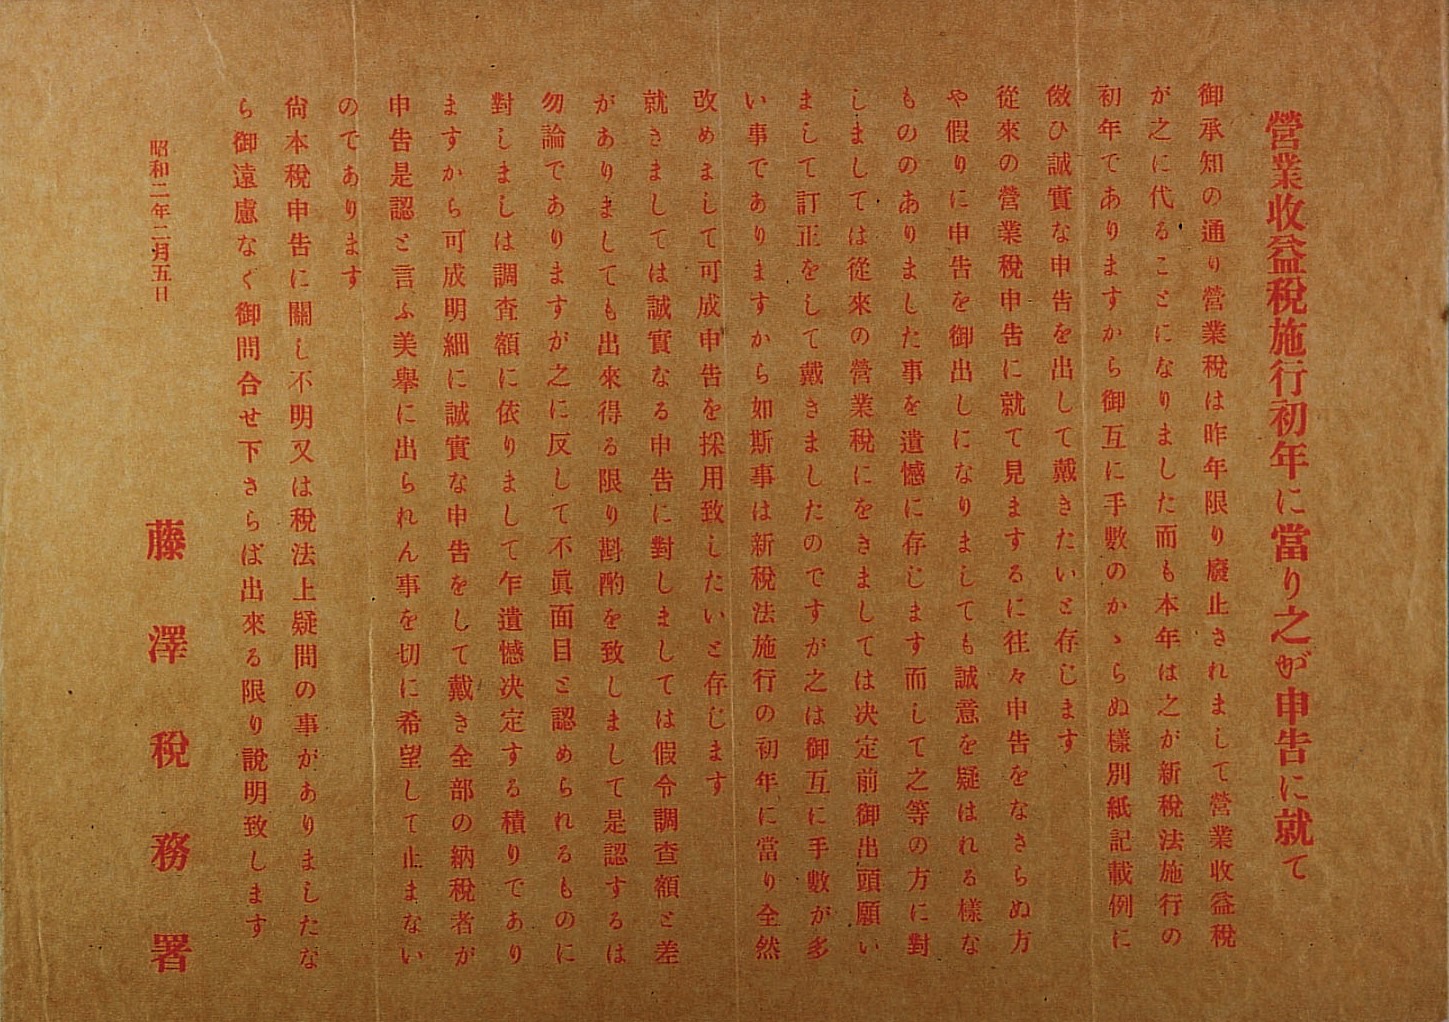 營業收益稅施行初年に當り之が申告に就て
御承知の通り營業稅は昨年限り廢止されまして營業收益稅
が之に代ることになりました而も本年は之が新稅法施行の
初年でありますから御互に手數のかゝらぬ樣別紙記載例に
傚ひ誠實な申告を出して戴きたいと存じます
從來の營業稅申告に就て見まするに往々申告をなさらぬ方
や假りに申告を御出しになりましても誠意を疑はれる樣な
もののありました事を遺憾に存じます而して之等の方に對
しましては從來の營業稅にをきましては决定前御出頭願い
まして訂正をして戴きましたのですが之は御互に手數が多
い事でありますから如斯事は新稅法施行の初年に當り全然
改めまして可成申告を採用致したいと存じます
就きましては誠實なる申告に對しましては假令調査額と差
がありましても出來得る限り斟酌を致しまして是認するは
勿論でありますが之に反して不眞面目と認められるものに
對しましは調査額に依りまして乍遺憾决定する積りであり
ますから可成明細に誠實な申告をして戴き全部の納稅者が
申告是認と言ふ美擧に出られん事を切に希望して止まない
のであります
尙本稅申告に關し不明又は稅法上疑問の事がありましたな
ら御遠慮なく御問合せ下さらば出來る限り說明致します
昭和二年二月五日
藤澤稅務署